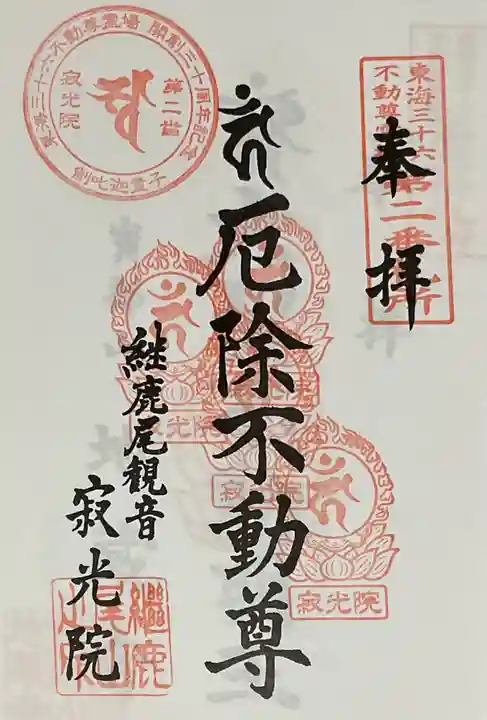 東海三十六
不動尊
第二番
所
奉拝
厄除不動尊
継鹿尾観音
寂光院
三十六不動尊霊場 開創三十周年記念
第二番
寂光院
寂光院
寂光院
光院
繼鹿
尾山